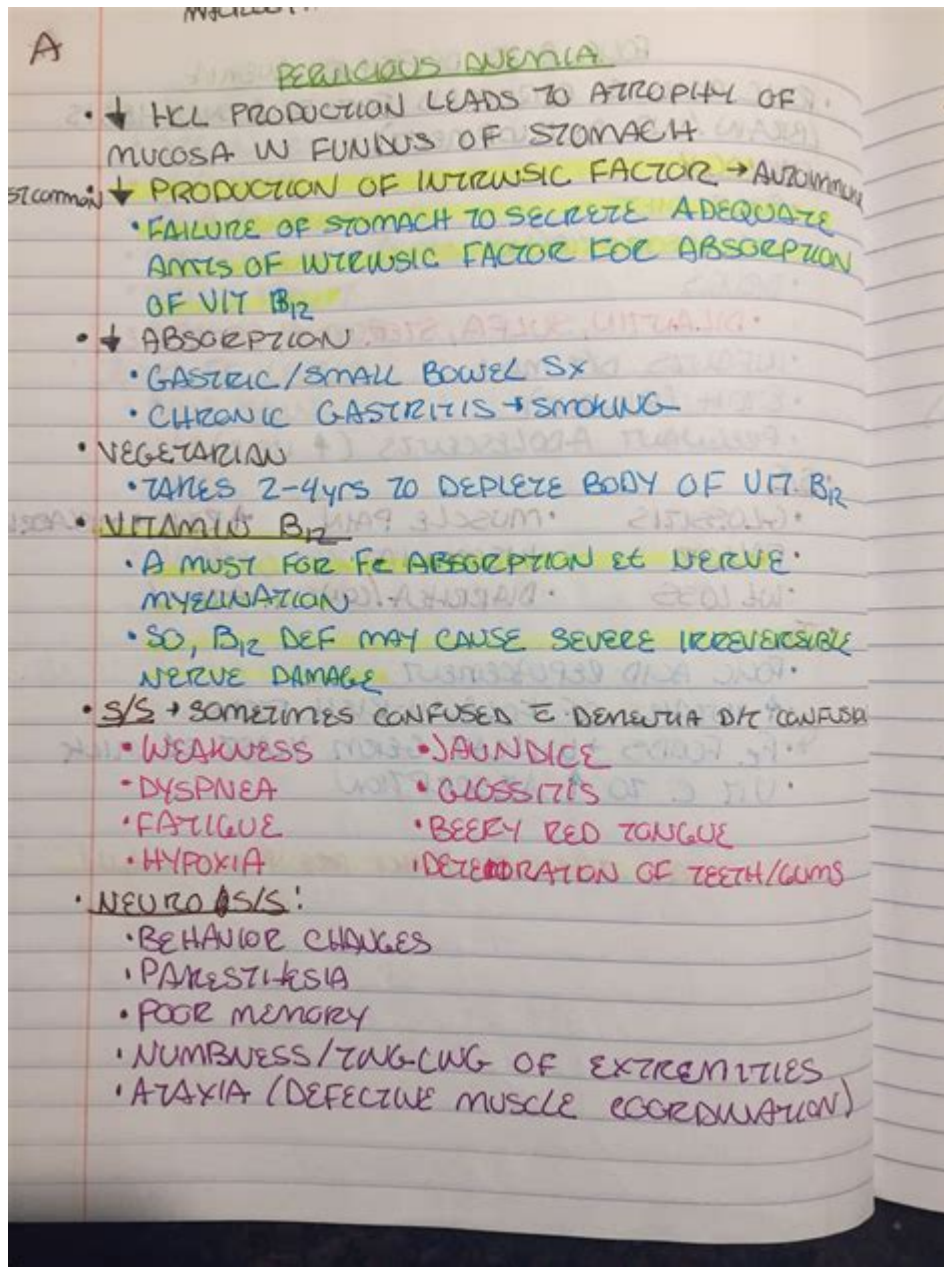 A
PERNICIOUS ANEMIA
• ↓ HCL PRODUCTION LEADS TO ATROPHY OF
MUCOSA IN FUNDUS OF STOMACH
ST common ↓ PRODUCTION OF INTRINSIC FACTOR → AUTOIMMUNE
• FAILURE OF STOMACH TO SECRETE ADEQUATE
AMTS OF INTRINSIC FACTOR FOR ABSORPTION
OF VIT B12
• ↓ ABSORPTION
• GASTRIC/SMALL BOWEL SX
• CHRONIC GASTRITIS → SMOKING
• VEGETARIAN
• TAKES 2-4yrs TO DEPLETE BODY OF VIT. B12
• VITAMIN B12
• A MUST FOR Fe ABSORPTION et NERVE
MYELINATION
• SO, B12 DEF MAY CAUSE SEVERE IRREVERSIBLE
NERVE DAMAGE
• S/S → SOMETIMES CONFUSED c̄ DEMENTIA D/t CONFUSION
• WEAKNESS • JAUNDICE
• DYSPNEA • GLOSSITIS
• FATIGUE • BEERY RED TONGUE
• HYPOXIA • DETERIORATION OF TEETH/GUMS
• NEURO S/S:
• BEHAVIOR CHANGES
• PARESTHESIA
• POOR MEMORY
• NUMBNESS/TINGLING OF EXTREMITIES
• ATAXIA (DEFECTIVE MUSCLE COORDINATION)